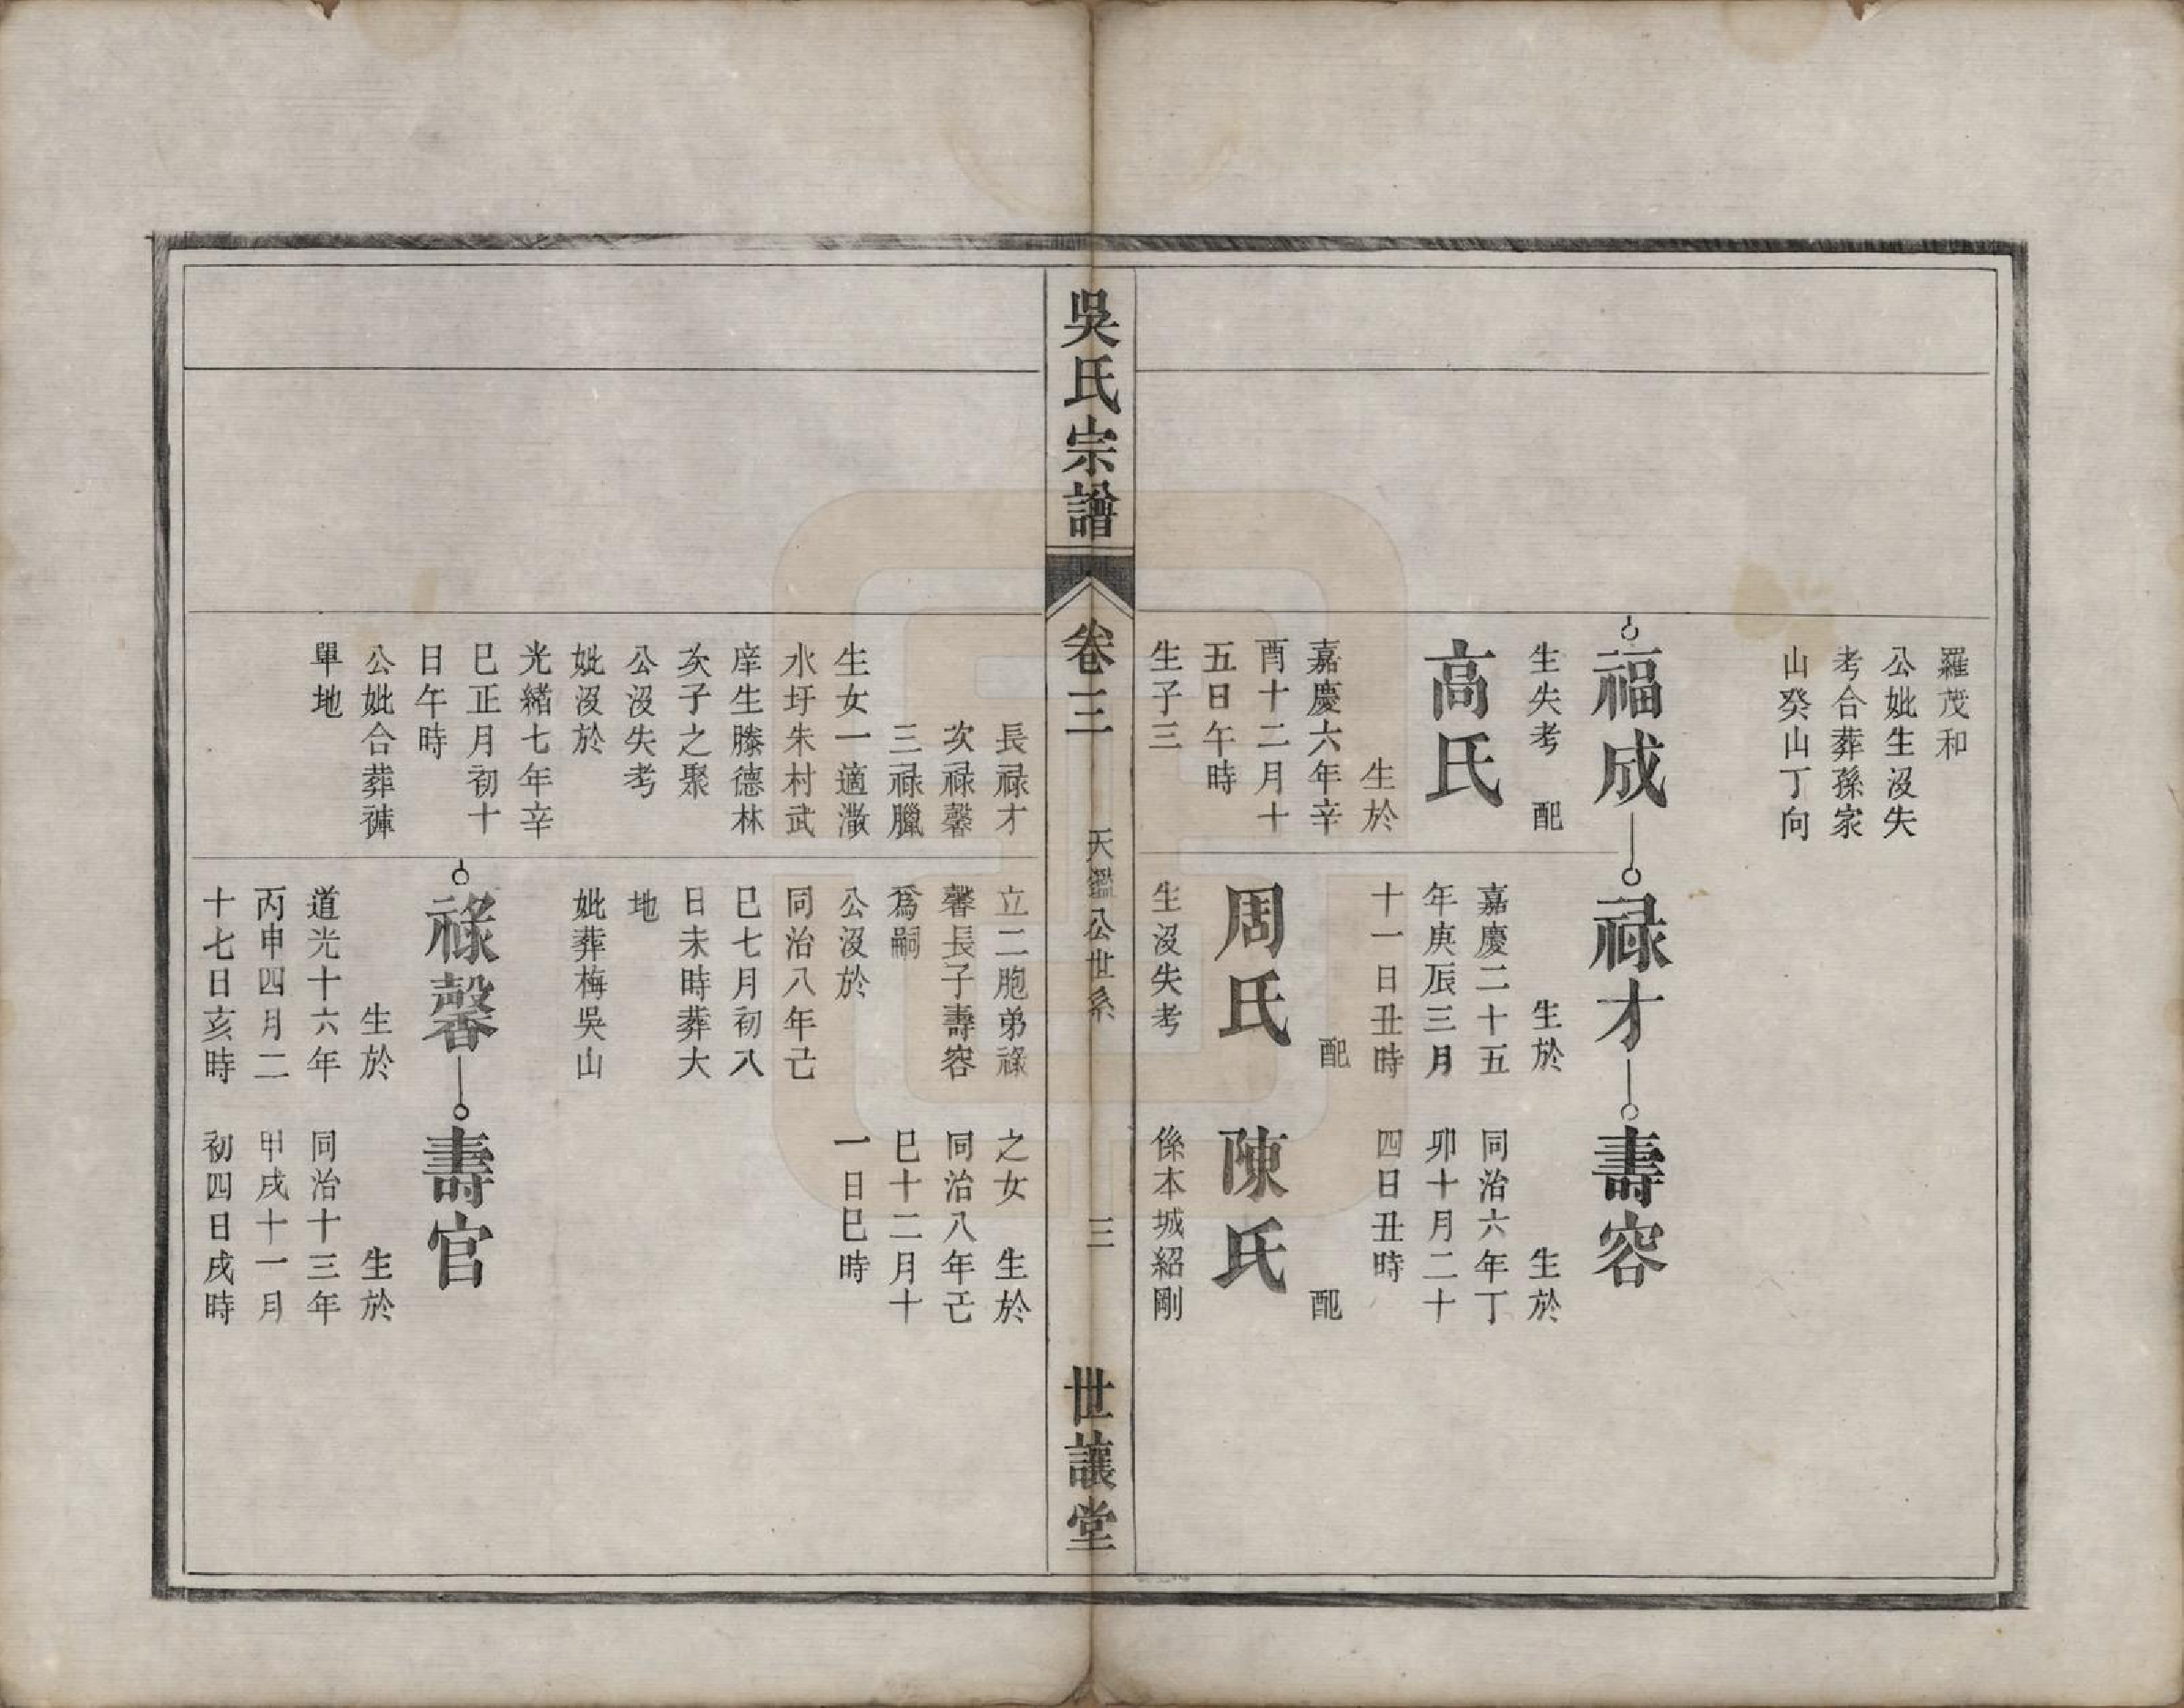 羅茂和
公妣生沒失
考合葬孫家
山癸山丁向
福成
生失考　配
高氏
生於
嘉慶六年辛
酉十二月十
五日午時
生子三
祿才
生於
嘉慶二十五
年庚辰三月
十一日丑時
配
周氏
生沒失考
壽容
生於
同治六年丁
卯十月二十
四日丑時
配
陳氏
係本城紹剛
吳氏宗譜
卷三
天鑑公世系
三
世讓堂
長祿才
次祿馨
三祿臘
生女一適潵
水圩朱村武
庠生滕德林
次子之聚
公沒失考
妣沒於
光緒七年辛
巳正月初十
日午時
公妣合葬褲
單地
立二胞弟祿
馨長子壽容
爲嗣
公沒於
同治八年己
巳七月初八
日未時葬大
地
妣葬梅吳山
之女　生於
同治八年己
巳十二月十
一日巳時
祿馨
生於
道光十六年
丙申四月二
十七日亥時
壽官
生於
同治十三年
甲戌十一月
初四日戌時